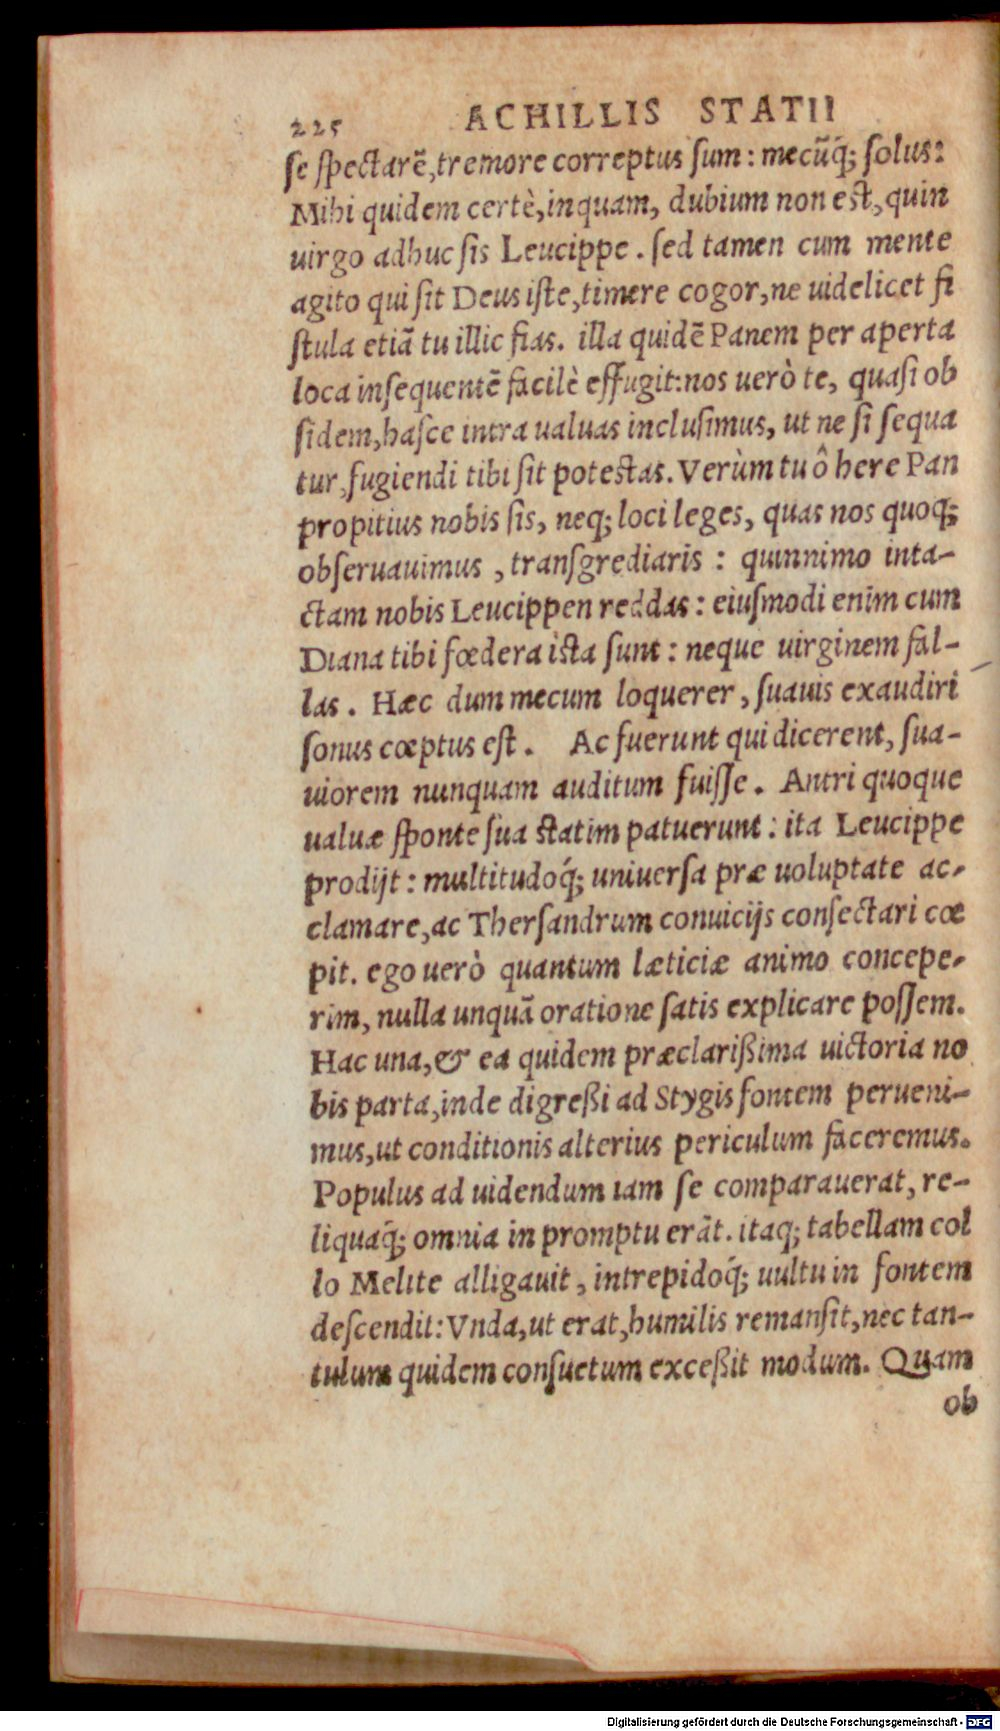 225 ACHILLIS STATII
se spectarẽ, tremore correptus sum: mecũq́; solus:
Mihi quidem certè, inquam, dubium non est, quin
uirgo adhuc sis Leucippe. sed tamen cum mente
agito qui sit Deus iste, timere cogor, ne uidelicet fi
stula etiã tu illic fias. illa quidẽ Panem per aperta
loca insequentẽ facilè effugit: nos uerò te, quasi ob
sidem, hasce intra ualuas inclusimus, ut ne si sequa
tur, fugiendi tibi sit potestas. Verùm tu ô here Pan
propitius nobis sis, neq; loci leges, quas nos quoq;
obseruauimus, transgrediaris: quinnimo inta-
ctam nobis Leucippen reddas: eiusmodi enim cum
Diana tibi fœdera icta sunt: neque uirginem fal-
las. Hæc dum mecum loquerer, suauis exaudiri
sonus cœptus est. Ac fuerunt qui dicerent, sua-
uiorem nunquam auditum fuisse. Antri quoque
ualuæ sponte sua statim patuerunt: ita Leucippe
prodijt: multitudoq́; uniuersa præ uoluptate ac-
clamare, ac Thersandrum conuicijs consectari cœ
pit. ego uerò quantum læticiæ animo concepe-
rim, nulla unquã oratione satis explicare possem.
Hac una, & ea quidem præclarißima uictoria no
bis parta, inde digreßi ad Stygis fontem perueni-
mus, ut conditionis alterius periculum faceremus.
Populus ad uidendum iam se comparauerat, re-
liquaq́; omnia in promptu erãt. itaq; tabellam col
lo Melite alligauit, intrepidoq́; uultu in fontem
descendit: Vnda, ut erat, humilis remansit, nec tan-
tulum quidem consuetum exceßit modum. Quam
ob
Digitalisierung gefördert durch die Deutsche Forschungsgemeinschaft - DFG